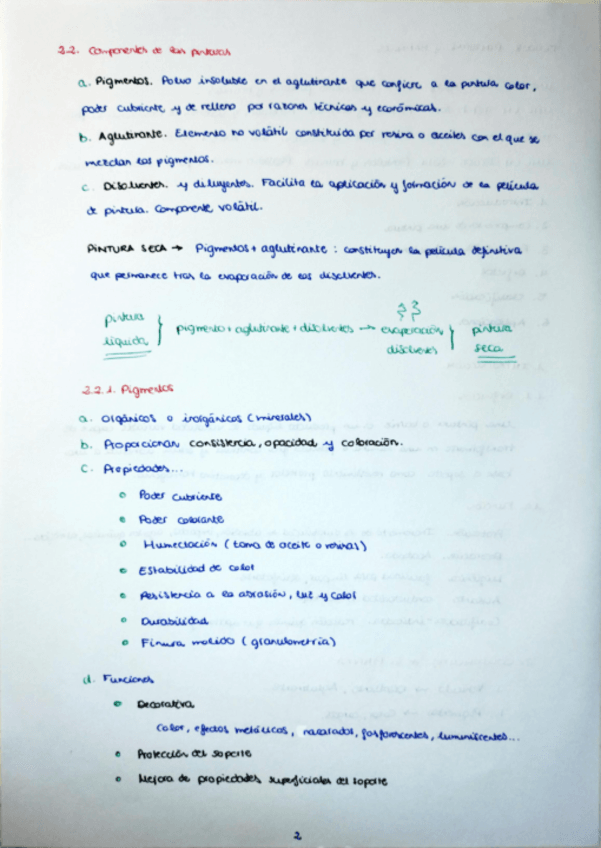 2.2. Componentes de las pinturas
a. Pigmentos. Polvo insoluble en el aglutinante que confiere a la pintura color,
poder cubriente y de relleno por razones técnicas y económicas.
b. Aglutinante. Elemento no volátil constituida por resina o aceites con el que se
mezclan los pigmentos.
c. Disolventes. y diluyentes. Facilita la aplicación y formación de la película
de pintura. Componente volátil.
PINTURA SECA → Pigmentos + aglutinante : constituyen la película definitiva
que permanece tras la evaporación de los disolventes.
pintura líquida } pigmento + aglutinante + disolventes → evaporación disolventes } pintura seca
2.2.1. Pigmentos
a. Orgánicos o inorgánicos (minerales)
b. Proporcionan consistencia, opacidad y coloración.
c. Propiedades...
• Poder cubriente
• Poder colorante
• Humectación (toma de aceite o resinas)
• Estabilidad de color
• Resistencia a la abrasión, luz y calor
• Durabilidad
• Finura molido (granulometría)
d. Funciones
• Decorativa
Color, efectos metálicos, nacarados, fosforescentes, luminiscentes...
• Protección del soporte
• Mejora de propiedades superficiales del soporte
2